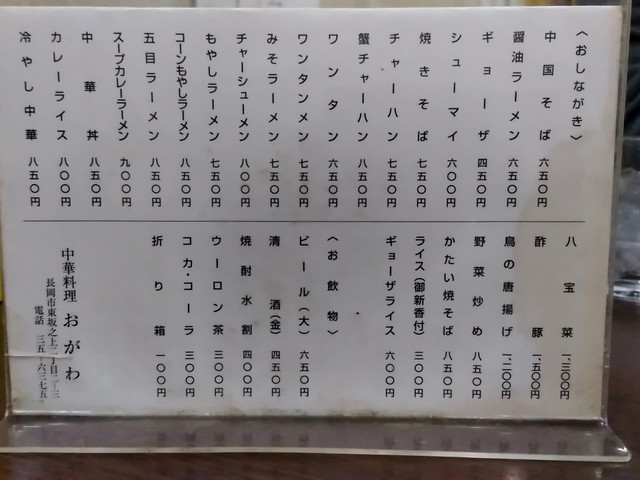 〈おしながき〉
中国そば 六五〇円
醤油ラーメン 六五〇円
ギョーザ 四五〇円
シューマイ 六〇〇円
焼きそば 七五〇円
チャーハン 七五〇円
蟹チャーハン 八五〇円
ワンタン 六五〇円
ワンタンメン 七五〇円
みそラーメン 七五〇円
チャーシューメン 八〇〇円
もやしラーメン 七五〇円
コーンもやしラーメン 八五〇円
五目ラーメン 八五〇円
スープカレーラーメン 九〇〇円
中華丼 八五〇円
カレーライス 八〇〇円
冷やし中華 八五〇円
八宝菜 一、三〇〇円
酢豚 一、五〇〇円
鳥の唐揚げ 一、二〇〇円
野菜炒め 八五〇円
かたい焼そば 八五〇円
ライス(御新香付) 三〇〇円
ギョーザライス 六〇〇円
〈お飲物〉
ビール(大) 六五〇円
清酒(金) 四五〇円
焼酎水割 四〇〇円
ウーロン茶 三〇〇円
コカ・コーラ 三〇〇円
折り箱 一〇〇円
中華料理 おがわ
長岡市東坂之上二丁目三ー三
電話 三五ー六三七五